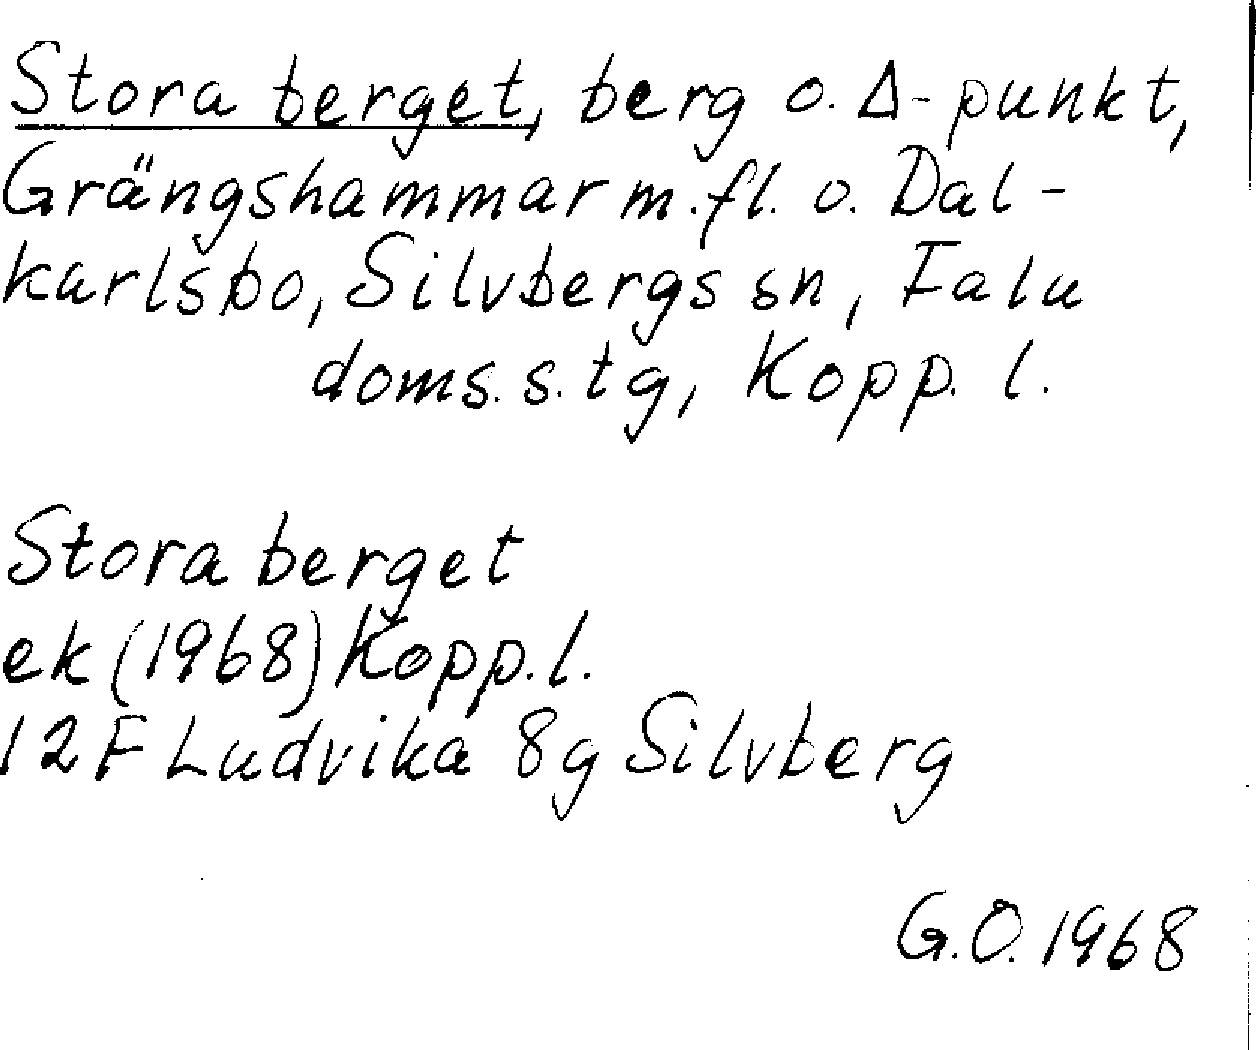 Stora berget, berg o. Δ-punkt,
Grängshammar m.fl. o. Dal-
karlsbo, Silvbergs sn, Falu
doms.s.tg, Kopp. l.
Stora berget
ek (1968) Kopp.l.
12F Ludvika 8g Silvberg
G.O. 1968